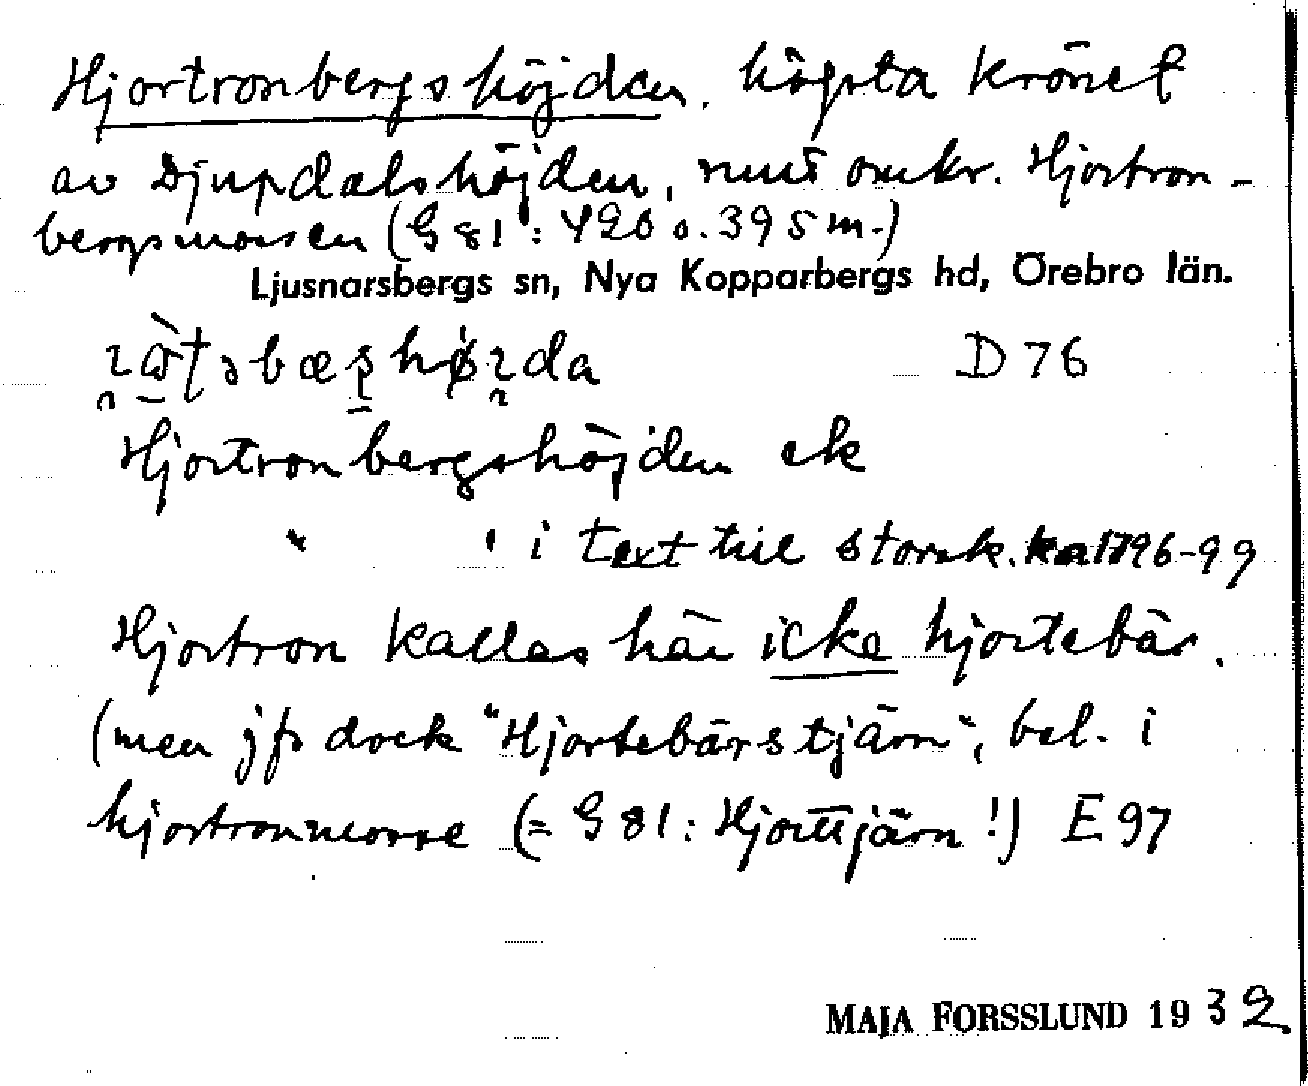 Hjortronbergshöjden. högsta krönet
av Djupdalshöjden, runt omkr. Hjortron-
bergsmossen (G 81: 420 o. 395 m.)
Ljusnarsbergs sn, Nya Kopparbergs hd, Örebro län.
D 76
Hjortronbergshöjden ek
" " i text till storsk.ka 1796-99
Hjortron kallas här icke hjortebär.
(men jfr dock "Hjortebärstjärn", bel. i
hjortronmosse (= G 81: Hjorttjärn!) E 97
MAJA FORSSLUND 1932